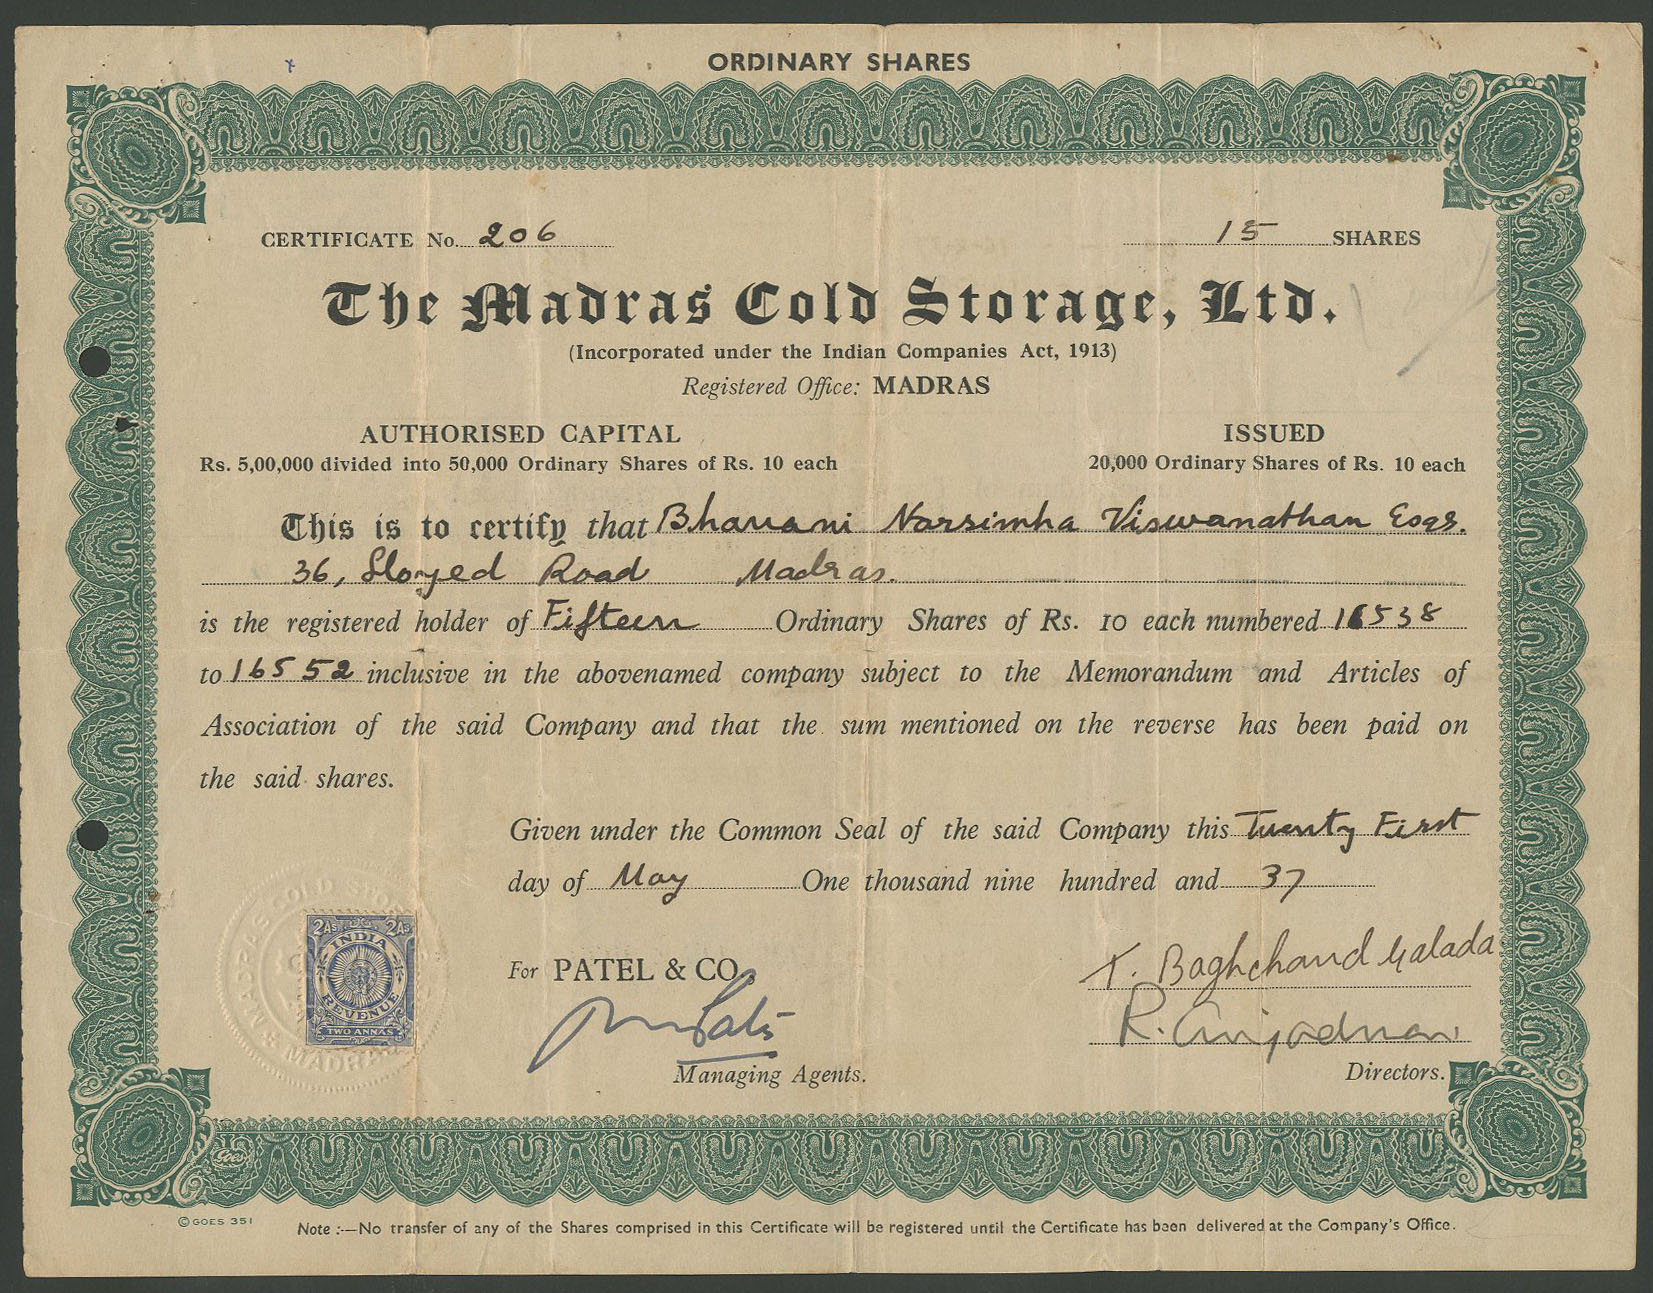 ORDINARY SHARES
CERTIFICATE No. 206 15 SHARES
The Madras Cold Storage, Ltd.
(Incorporated under the Indian Companies Act, 1913)
Registered Office: MADRAS
AUTHORISED CAPITAL ISSUED
Rs. 5,00,000 divided into 50,000 Ordinary Shares of Rs. 10 each 20,000 Ordinary Shares of Rs. 10 each
This is to certify that Bhavani Narsimha Viswanathan Esqr.
36, Lloyed Road Madras.
is the registered holder of Fifteen Ordinary Shares of Rs. 10 each numbered 16538
to 16552 inclusive in the abovenamed company subject to the Memorandum and Articles of
Association of the said Company and that the sum mentioned on the reverse has been paid on
the said shares.
Given under the Common Seal of the said Company this Twenty First
day of May One thousand nine hundred and 37
MADRAS COLD STOR
MADRAS
2As 2As
INDIA
REVENUE
TWO ANNAS
For PATEL & CO.
T. Baghchand Galada
R.
Managing Agents. Directors.
Goes
© GOES 351
Note :—No transfer of any of the Shares comprised in this Certificate will be registered until the Certificate has been delivered at the Company's Office.